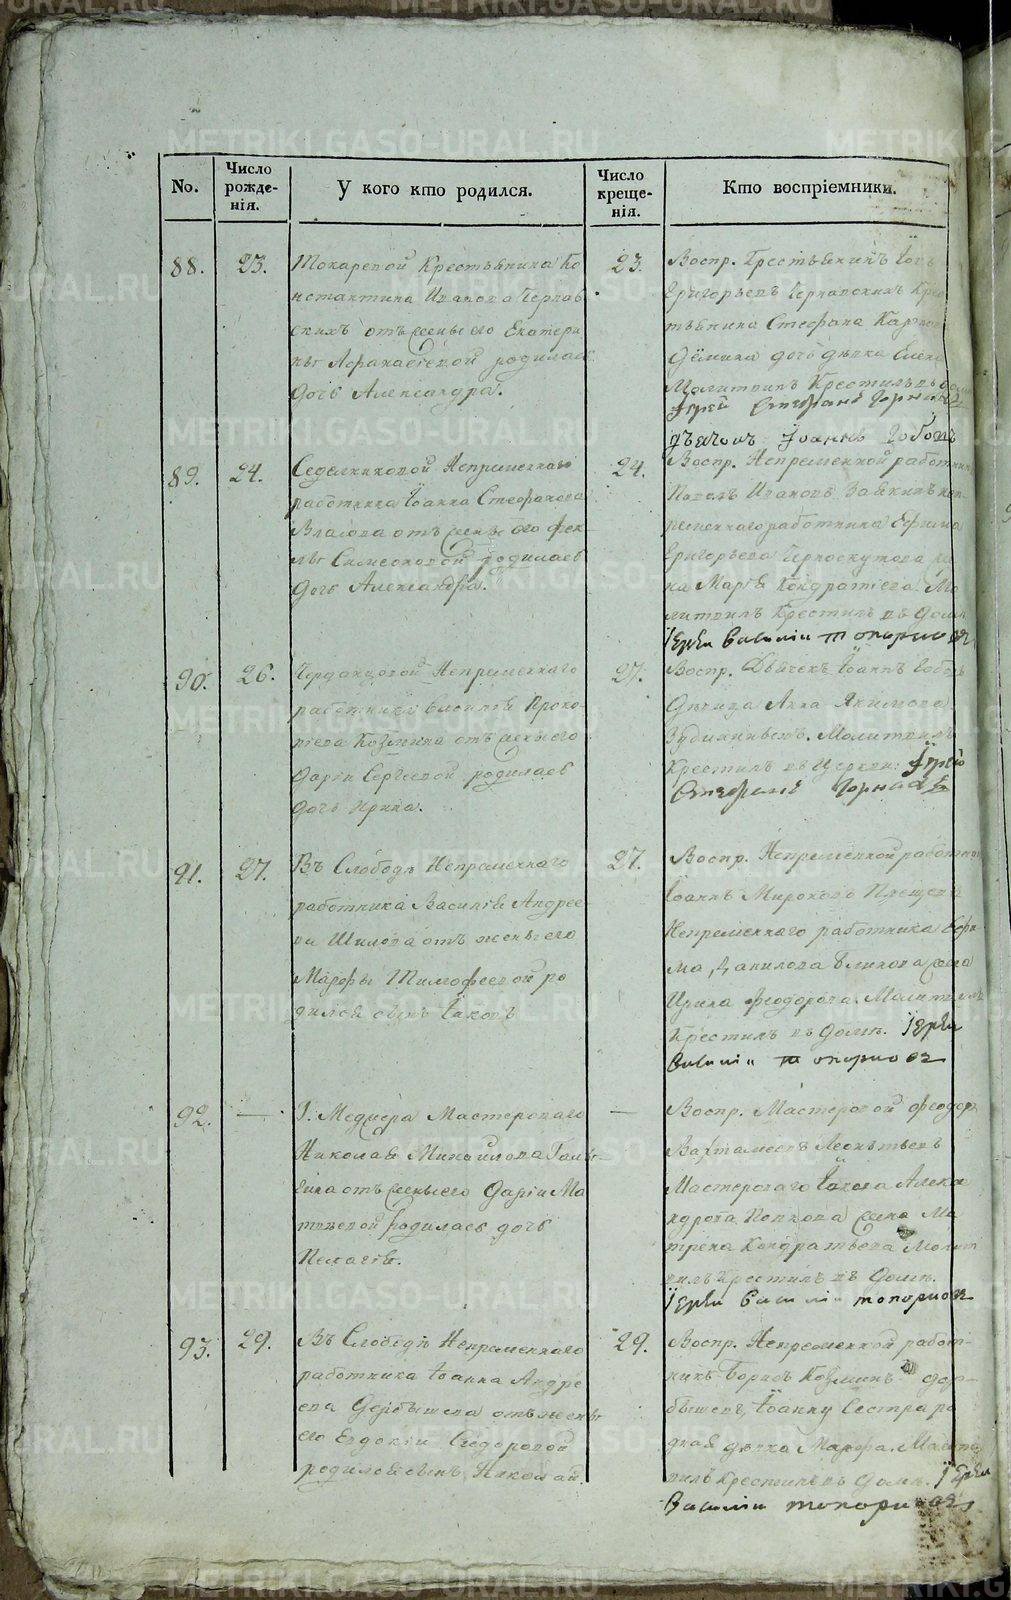 No.
Число
рожде-
нія.
У кого кто родился.
Число
креще-
нія.
Кто воспріемники.
88.
23.
Токаревой Крестьянина Ко
нстантина Иванова Чернав
скихъ отъ жены его Екатери
ны Афанасіевой родилась
дочь Александра.
23.
Воспр. Крестьянинъ
Григорьевъ Чернавскихъ Крес
тьянина Стефана Карпова
Дёмина дочь дѣвка Елена
Молитвилъ Крестилъ въ
Іерей Стефанъ Горныхъ
дьячокъ Іоаннъ
89.
24.
Седельниковой Непременнаго
работника Іоанна Стефанова
Власова отъ жены его Фек
лы Симеоновой родилась
дочь Александра.
24.
Воспр. Непременной работникъ
Ивановъ неп
ременнаго работника Ефима
Григорьева Черноскутова же
на Марія Кондратіева. Мо
литвилъ Крестилъ въ домѣ
Іерей Василій Топорковъ
90.
26.
Непременнаго
работника Василія Проко
піева Козмина отъ жены его
Даріи Сергіевой родилась
дочь Ирина.
27.
Воспр. Дьячекъ Іоаннъ
Дѣвица Анна Якимова
Молитвилъ
Крестилъ въ Церкви. Іерей
Стефанъ Горныхъ
91.
27.
Въ Слободѣ Непременнаго
работника Василія Андрее
ва Шилова отъ жены его
Марфы Тимофеевой ро
дился сынъ Іаковъ
27.
Воспр. Непременной работник
Іоаннъ Мироновъ
Непременнаго работника Ефи
ма Данилова Блинова жена
Ирина Феодорова. Молитвилъ
Крестилъ въ домѣ. Іерей
Василій Топорковъ
92.
—
Мастероваго
Николая Михайлова
отъ жены его Даріи Ма
твѣевой родилась дочь
Пелагія.
—
Воспр. Мастеровой Феодоръ
Леонтьевъ
Мастероваго Іакова Алекса
ндрова Попкова жена Ма
трена Кондратьева Молит
вилъ Крестилъ въ домѣ.
Іерей Василій Топорковъ
93.
29.
Въ Слободѣ Непременнаго
работника Іоанна Андре
ева Дербышева отъ жены
его Евдокіи Сидоровой
родился сынъ Николай.
29.
Воспр. Непременной работ-
никъ Борисъ Козминъ Дер-
бышевъ, Іоанну Сестра ро
дная дѣвка Марфа. Молит
вилъ Крестилъ въ домѣ. Іерей
Василій Топорковъ
METRIKI.GASO-URAL.RU